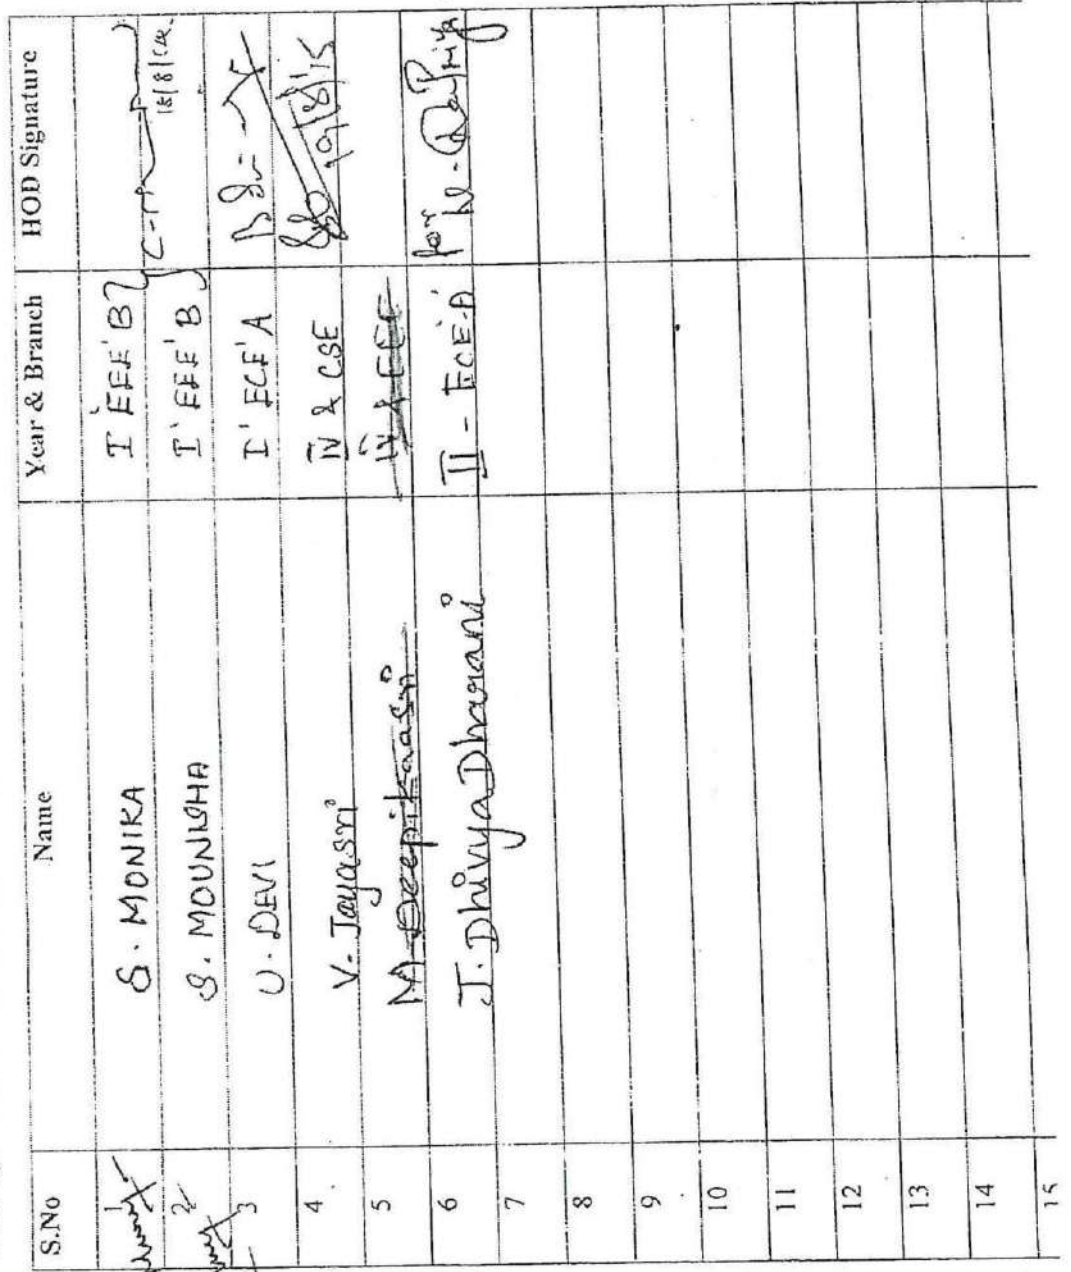 S.No Name Year & Branch HOD Signature
1 S. MONIKA I 'EEE' B
18/8/
2 S. MOUNISHA I 'EEE' B
3 U. DEVI I' ECE' A
4 V. Jayasri IV & CSE 19/8/15
5 M. Deepikaasri IV & EEE
6 J. Dhivya Dharani II - ECE 'A' for N.
7
8
9
10
11
12
13
14
15